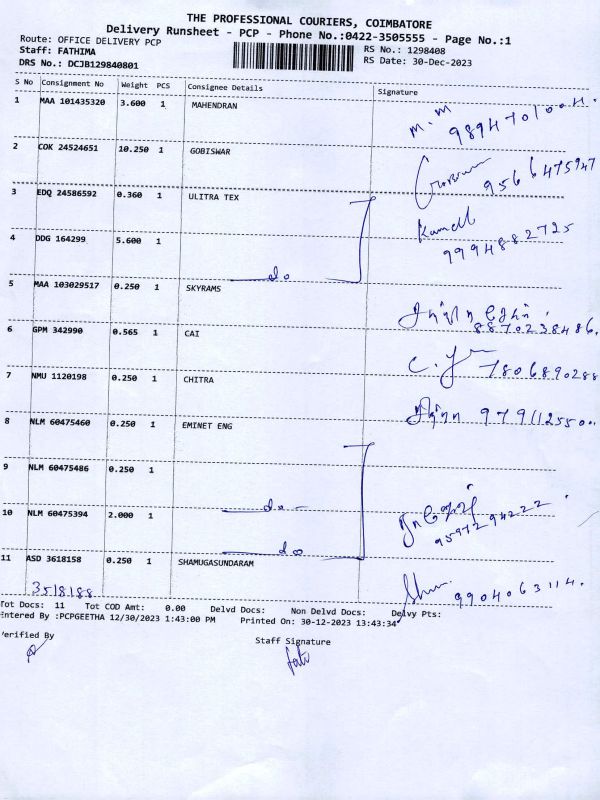 THE PROFESSIONAL COURIERS, COIMBATORE
Delivery Runsheet - PCP - Phone No.:0422-3505555 - Page No.:1
Route: OFFICE DELIVERY PCP
RS No.: 1298408
Staff: FATHIMA
RS Date: 30-Dec-2023
DRS No.: DCJB129840801
S No Consignment No Weight PCS Consignee Details Signature
1 MAA 101435320 3.600 1 MAHENDRAN
M. M
2 COK 24524651 10.250 1 GOBISWAR
9566475947
3 EDQ 24586592 0.360 1 ULITRA TEX
9994882725
4 DDG 164299 5.600 1
do
5 MAA 103029517 0.250 1 SKYRAMS
8870238486.
6 GPM 342990 0.565 1 CAI
7806890288
7 NMU 1120198 0.250 1 CHITRA
8 NLM 60475460 0.250 1 EMINET ENG
9 NLM 60475486 0.250 1
do
10 NLM 60475394 2.000 1
9597294222
do
11 ASD 3618158 0.250 1 SHAMUGASUNDARAM
9904063114.
3518188
Tot Docs: 11 Tot COD Amt: 0.00 Delvd Docs: Non Delvd Docs: Delvy Pts:
Entered By :PCPGEETHA 12/30/2023 1:43:00 PM Printed On: 30-12-2023 13:43:34
Verified By
Staff Signature